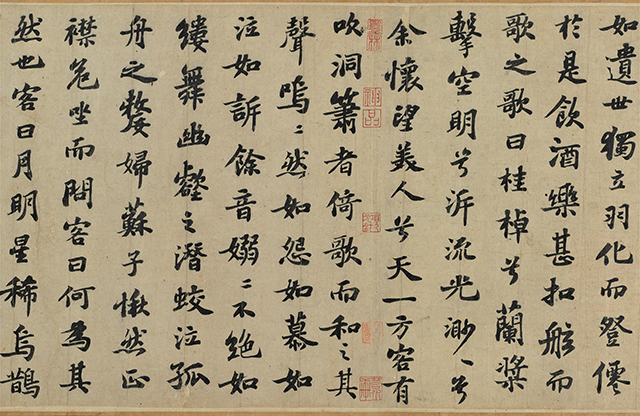 如遺世獨立羽化而登僊
於是飲酒樂甚扣舷而
歌之歌曰桂棹兮蘭槳
擊空明兮泝流光渺〻兮
余懷望美人兮天一方客有
吹洞簫者倚歌而和之其
聲嗚〻然如怨如慕如
泣如訴餘音嫋〻不絕如
縷舞幽壑之潛蛟泣孤
舟之嫠婦蘇子愀然正
襟危坐而問客曰何為其
然也客曰月明星稀烏鵲